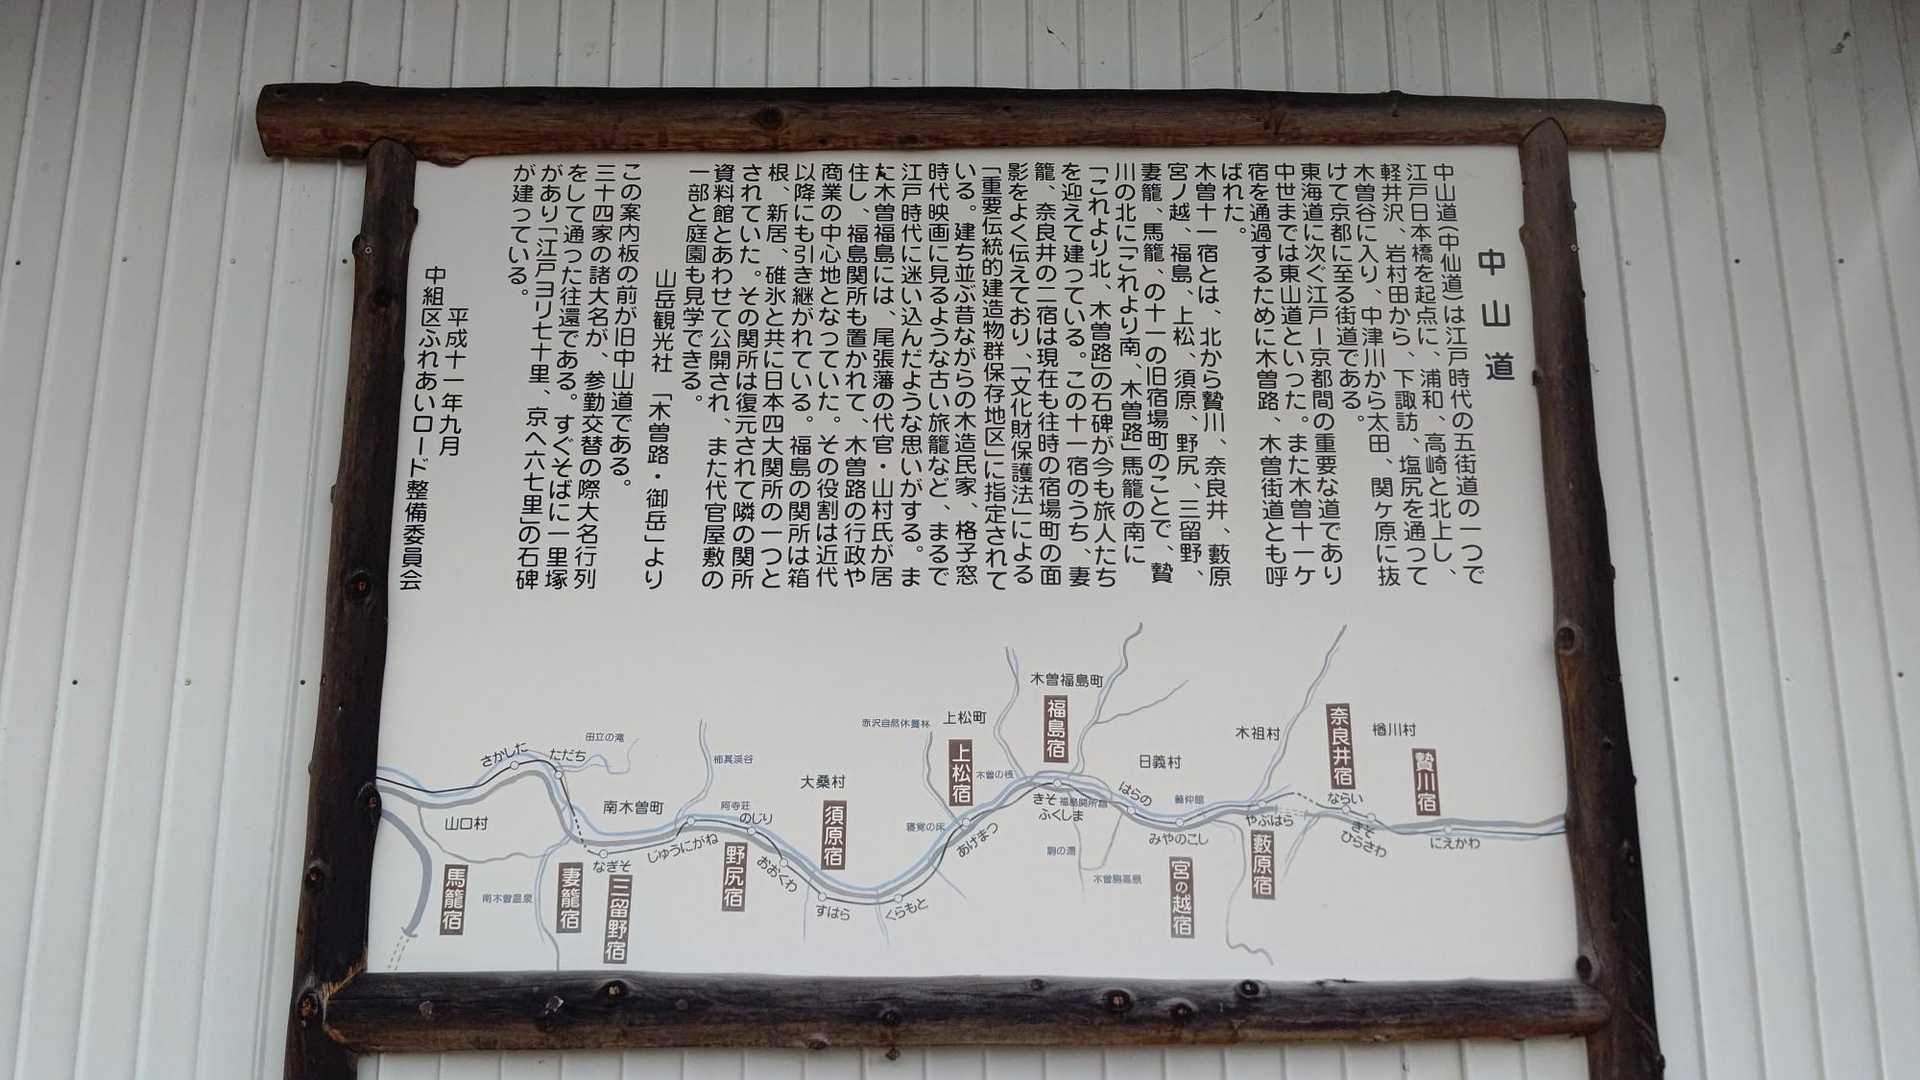 中山道
中山道(中仙道)は江戸時代の五街道の一つで
江戸日本橋を起点に、浦和、高崎と北上し、
軽井沢、岩村田から、下諏訪、塩尻を通って
木曽谷に入り、中津川から太田、関ヶ原に抜
けて京都に至る街道である。
東海道に次ぐ江戸ー京都間の重要な道であり
中世までは東山道といった。また木曽十一ケ
宿を通過するために木曽路、木曽街道とも呼
ばれた。
木曽十一宿とは、北から贄川、奈良井、藪原
宮ノ越、福島、上松、須原、野尻、三留野、
妻籠、馬籠、の十一の旧宿場町のことで、贄
川の北に「これより南、木曽路」馬籠の南に
「これより北、木曽路」の石碑が今も旅人たち
を迎えて建っている。この十一宿のうち、妻
籠、奈良井の二宿は現在も往時の宿場町の面
影をよく伝えており、「文化財保護法」による
「重要伝統的建造物群保存地区」に指定されて
いる。建ち並ぶ昔ながらの木造民家、格子窓
時代映画に見るような古い旅籠など、まるで
江戸時代に迷い込んだような思いがする。ま
た木曽福島には、尾張藩の代官・山村氏が居
住し、福島関所も置かれて、木曽路の行政や
商業の中心地となっていた。その役割は近代
以降にも引き継がれている。福島の関所は箱
根、新居、碓氷と共に日本四大関所の一つと
されていた。その関所は復元されて隣の関所
資料館とあわせて公開され、また代官屋敷の
一部と庭園も見学できる。
山岳観光社 「木曽路・御岳」より
この案内板の前が旧中山道である。
三十四家の諸大名が、参勤交替の際大名行列
をして通った往還である。すぐそばに一里塚
があり「江戸ヨリ七十里、京へ六七里」の石碑
が建っている。
平成十一年九月
中組区ふれあいロード整備委員会
楢川村
贄川宿
にえかわ
奈良井宿
ならい
きそ
ひらさわ
木祖村
やぶはら
藪原宿
義仲館
日義村
みやのこし
宮の越宿
はらの
木曽福島町
福島宿
きそ
ふくしま
福島関所趾
木曽駒高原
木曽の桟
上松町
上松宿
あげまつ
赤沢自然休養林
寝覚の床
くらもと
大桑村
須原宿
すはら
おおくわ
阿寺荘
のじり
野尻宿
柿其渓谷
じゅうにかね
南木曽町
なぎそ
三留野宿
妻籠宿
南木曽温泉
田立の滝
ただち
さかした
山口村
馬籠宿